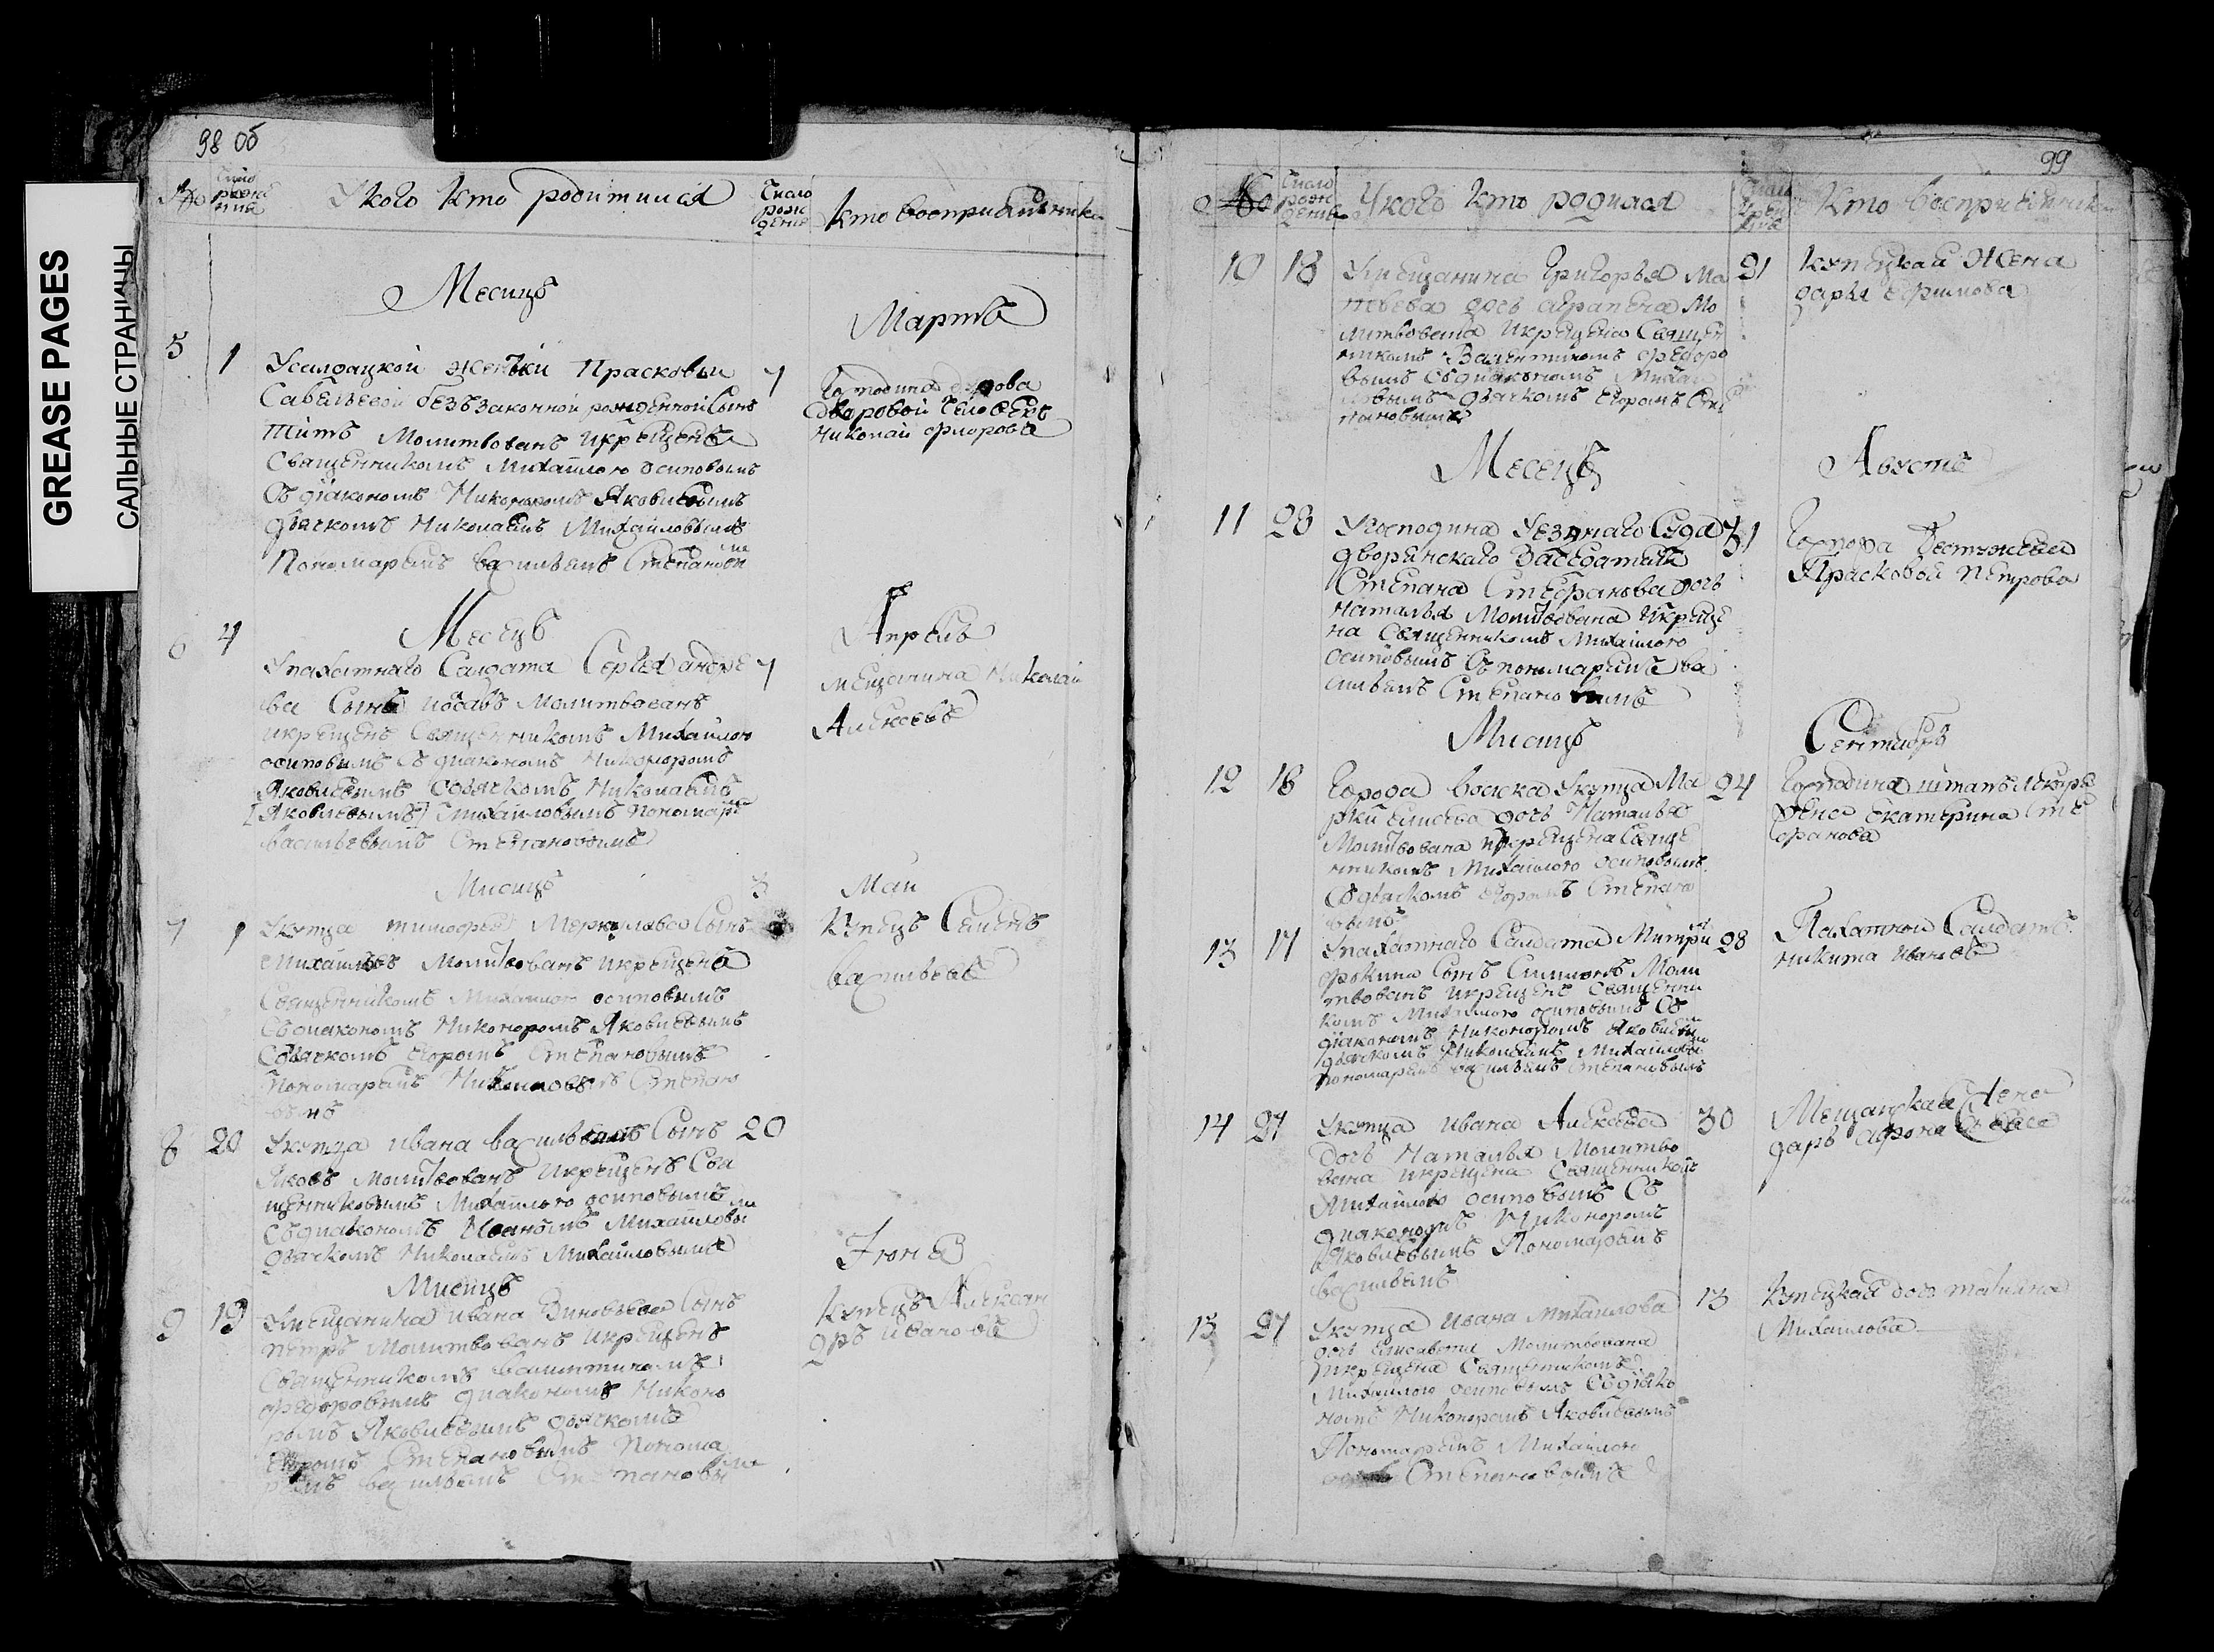 GREASE PAGES
САЛЬНЫЕ СТРАНИЦЫ
98 об
№
Число рожде ния
У кого кто родитилса
Число рож дение
кто восприемника
Месяцъ
Мартъ
5 1 Усалдацкой женки Прасковьи 7
Савельевой безъзаконной рожденной Сынъ
Титъ Молитвованъ икрещенъ
Священникомъ Михаилого осиповымъ
Съ діакономъ Никоноромъ Яковлевымъ
дьячкомъ Николаемъ Михаиловымъ
Пономаремъ василъемъ Степановы
дворовой человекъ
николай
Месецъ
Апрель
6 4 Упахатнаго Салдата Сергея андре 7
ва Сынъ Молитвованъ
икрещенъ Священникомъ Михаилого
осиповымъ Съ диакономъ Никоноромъ
Яковлевымъ Содьячкомъ Николаемъ
[Яковлевымъ] Михаиловымъ пономаре
васильевымъ Степановымъ
мещанина Николай
Алексеевъ
Мисицъ
3
Маи
7 1 Укупца тимофея Меркулова Сынъ
Михаилъ Молитвованъ икрещенъ
Священникомъ Михаилого осиповымъ
Съдиакономъ Никоноромъ Яковлевымъ
Содьячкомъ егоромъ Степановымъ
Пономаремъ Степано
вымъ
Купецъ Семенъ
васильевъ
8 20 Укупца ивана васильева Сынъ 20
Яковъ Молитвованъ икрещенъ Свя
щенниковымъ Михаилого осиповымъ
Съдиакономъ Иваномъ Михаиловы
дьячкомъ Николаемъ Михаиловымъ
Мисицъ
Июня
9 19 Умещанина ивана Зиновьева Сынъ
петръ Молитвованъ икрещенъ
Священникомъ валинтиномъ
федоровымъ диакономъ Никоно
ромъ Яковлевымъ дьячкомъ
Егоромъ Степановымъ понома
ремъ василъемъ Степановы
Купецъ Алексан
дръ ивановъ
99
Число рож дение
У кого кто родилса
Кто восприемник
10 18 Умещанина Григорья Ма 21
твеева дочь аграпена Мо
литвована икрещена Священ
никомъ Валентиномъ федоро
вымъ Съдиакономъ Михаи
ловымъ дьячкомъ егоромъ Сте
пановымъ
Купецкай Жена
дарья ефимова
Месецъ
Августъ
11 28 Угосподина уезднаго Суда 31
дворянскаго Заседателя
Степана Стефанова дочь
наталья Молитвована икреще
на Священникомъ Михаилого
осиповымъ Съ пономаремъ ва
сильемъ Степановымъ
Прасковья петрова
Мисицъ
Сентябръ
12 18 Города Укупца Ма 24
дочь Наталья
Молитвована икрещена Свяще
нникомъ Михаилого осиповымъ
Содьячкомъ егоромъ Степано
вымъ
Господина штапъ лекаря
Жена екатерина Сте
фанова
13 17 Упахатнаго Салдата Митри 28
фокина Сынъ Симионъ Моли
твованъ икрещенъ Священни
комъ Михаилого осиповымъ Съ
діакономъ Никоноромъ Яковлевы
дьячкомъ Николаемъ Михаиловы
пономаремъ василъемъ Степановымъ
Пахатной Салдатъ
никита ивановъ
14 27 Укупца ивана Алексеева 30
дочь Наталья Молитво
вана икрещена Священником
Михаилого осиповымъ Съ
диакономъ Никоноромъ
Яковлевымъ Пономаремъ
васильемъ
Мещанская Жена
15 27 Укупца ивана михаилова 13
дочь елисавета Молитвована
икрещена Священникомъ
Михаилого осиповымъ Съдіако
номъ Никоноромъ Яковлевымъ
Пономаремъ Михаилого
Степановымъ
Купецкай дочь татияна
Михаилова